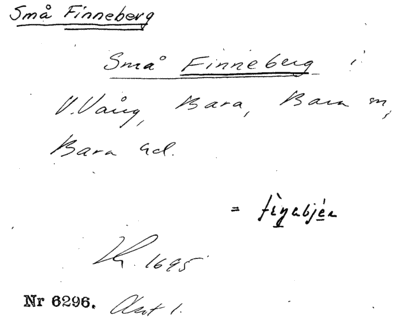 Små Finneberg
Små Finneberg i
V. Vång, Bara, Bara sn,
Bara hd.
=
1695
Nr 6296. Akt 1.